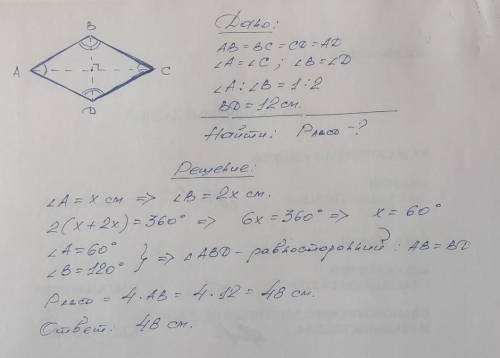 Дано:
B
A
C
D
AB = BC = CD = AD
∠A = ∠C; ∠B = ∠D
∠A : ∠B = 1 : 2
BD = 12 см.
Найти: Pромб - ?
Решение:
∠A = x см => ∠B = 2x см.
2(x + 2x) = 360° => 6x = 360° => x = 60°
∠A = 60°
∠B = 120° } => ∠ABD - равносторонний : AB = BD
Pромб = 4 · AB = 4 · 12 = 48 см.
Ответ: 48 см.